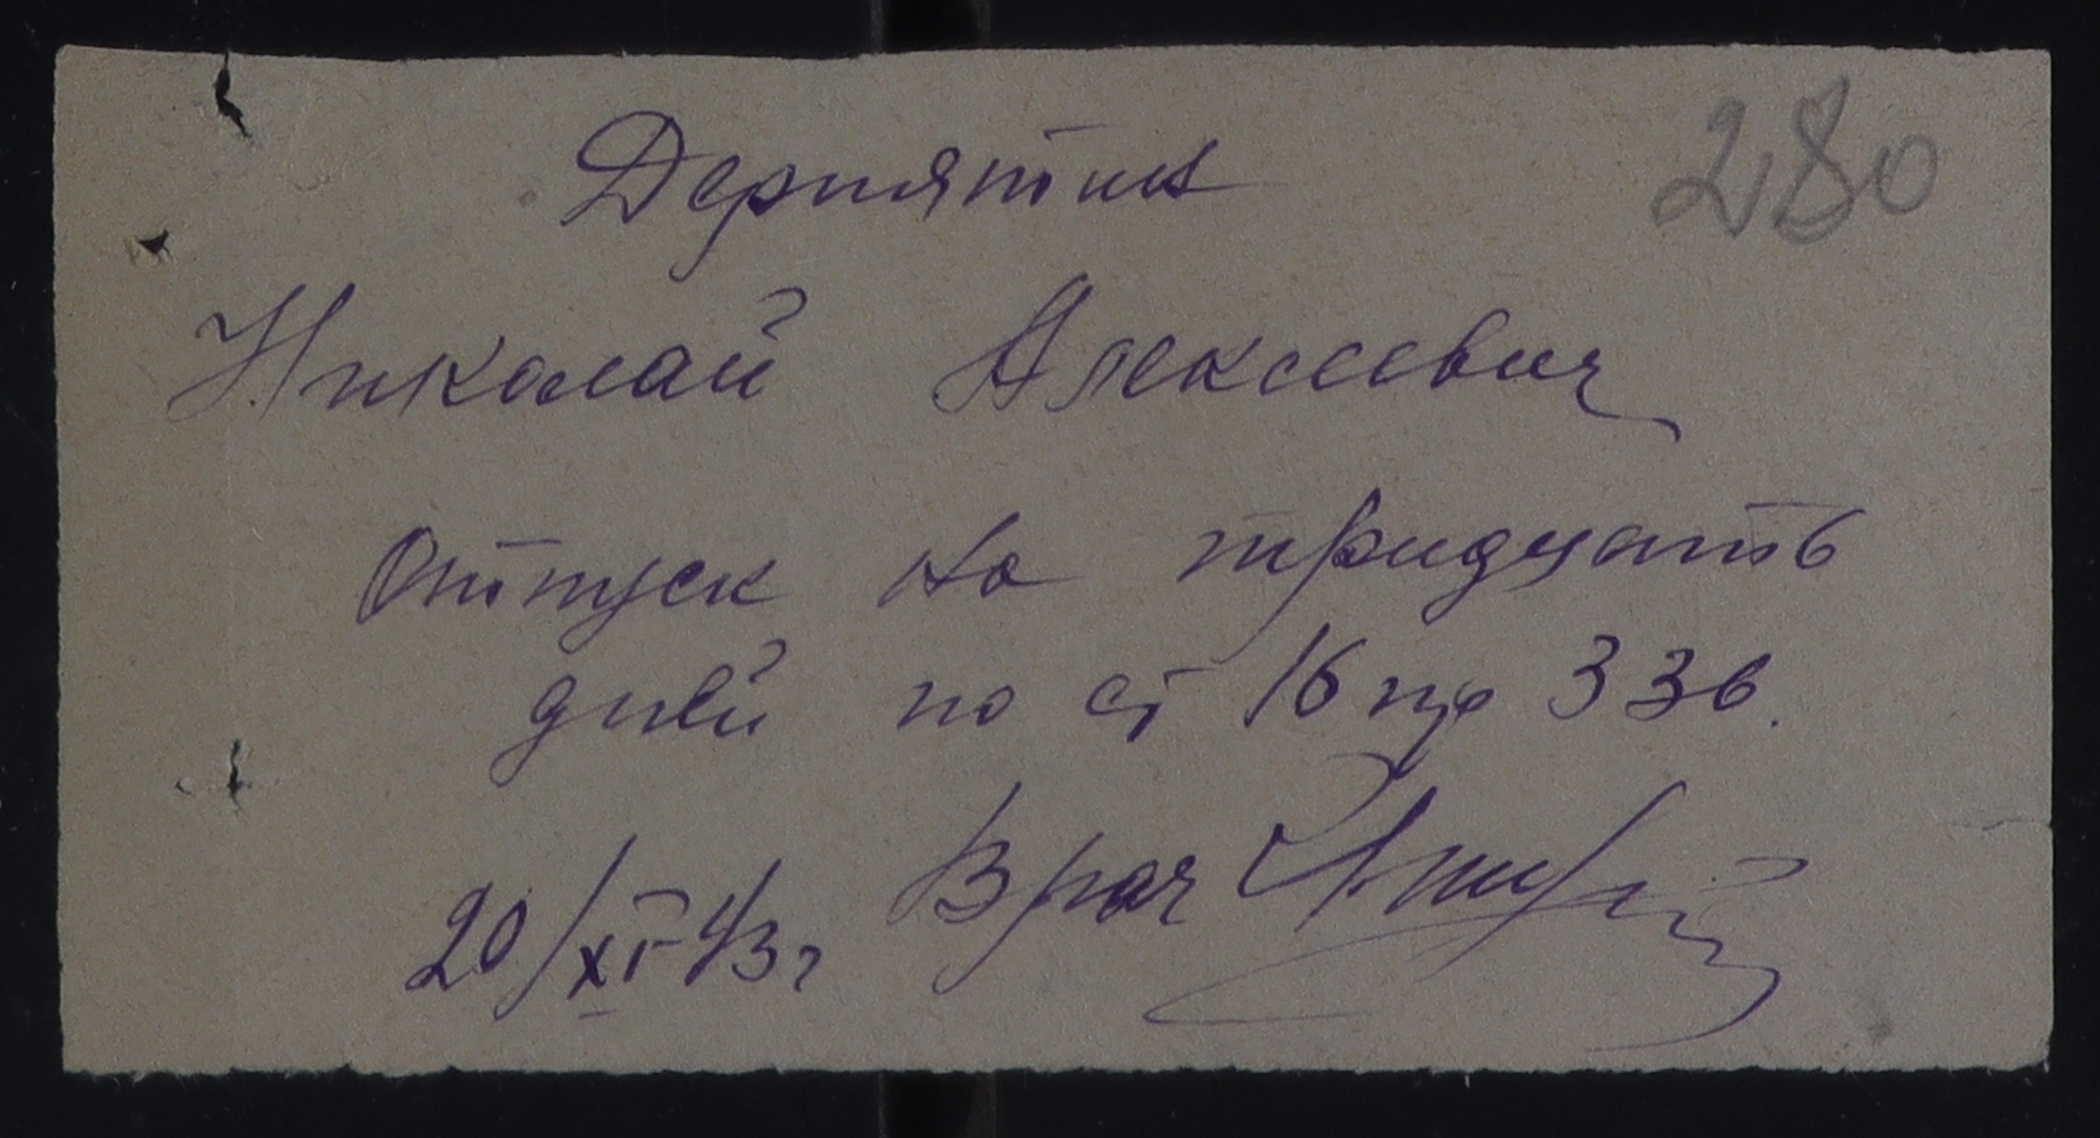 280
Дерпятик
Николай Алексеевич
Отпуск на тридцать
дней по ст 16 пр 336.
20/XI 43 г Врач